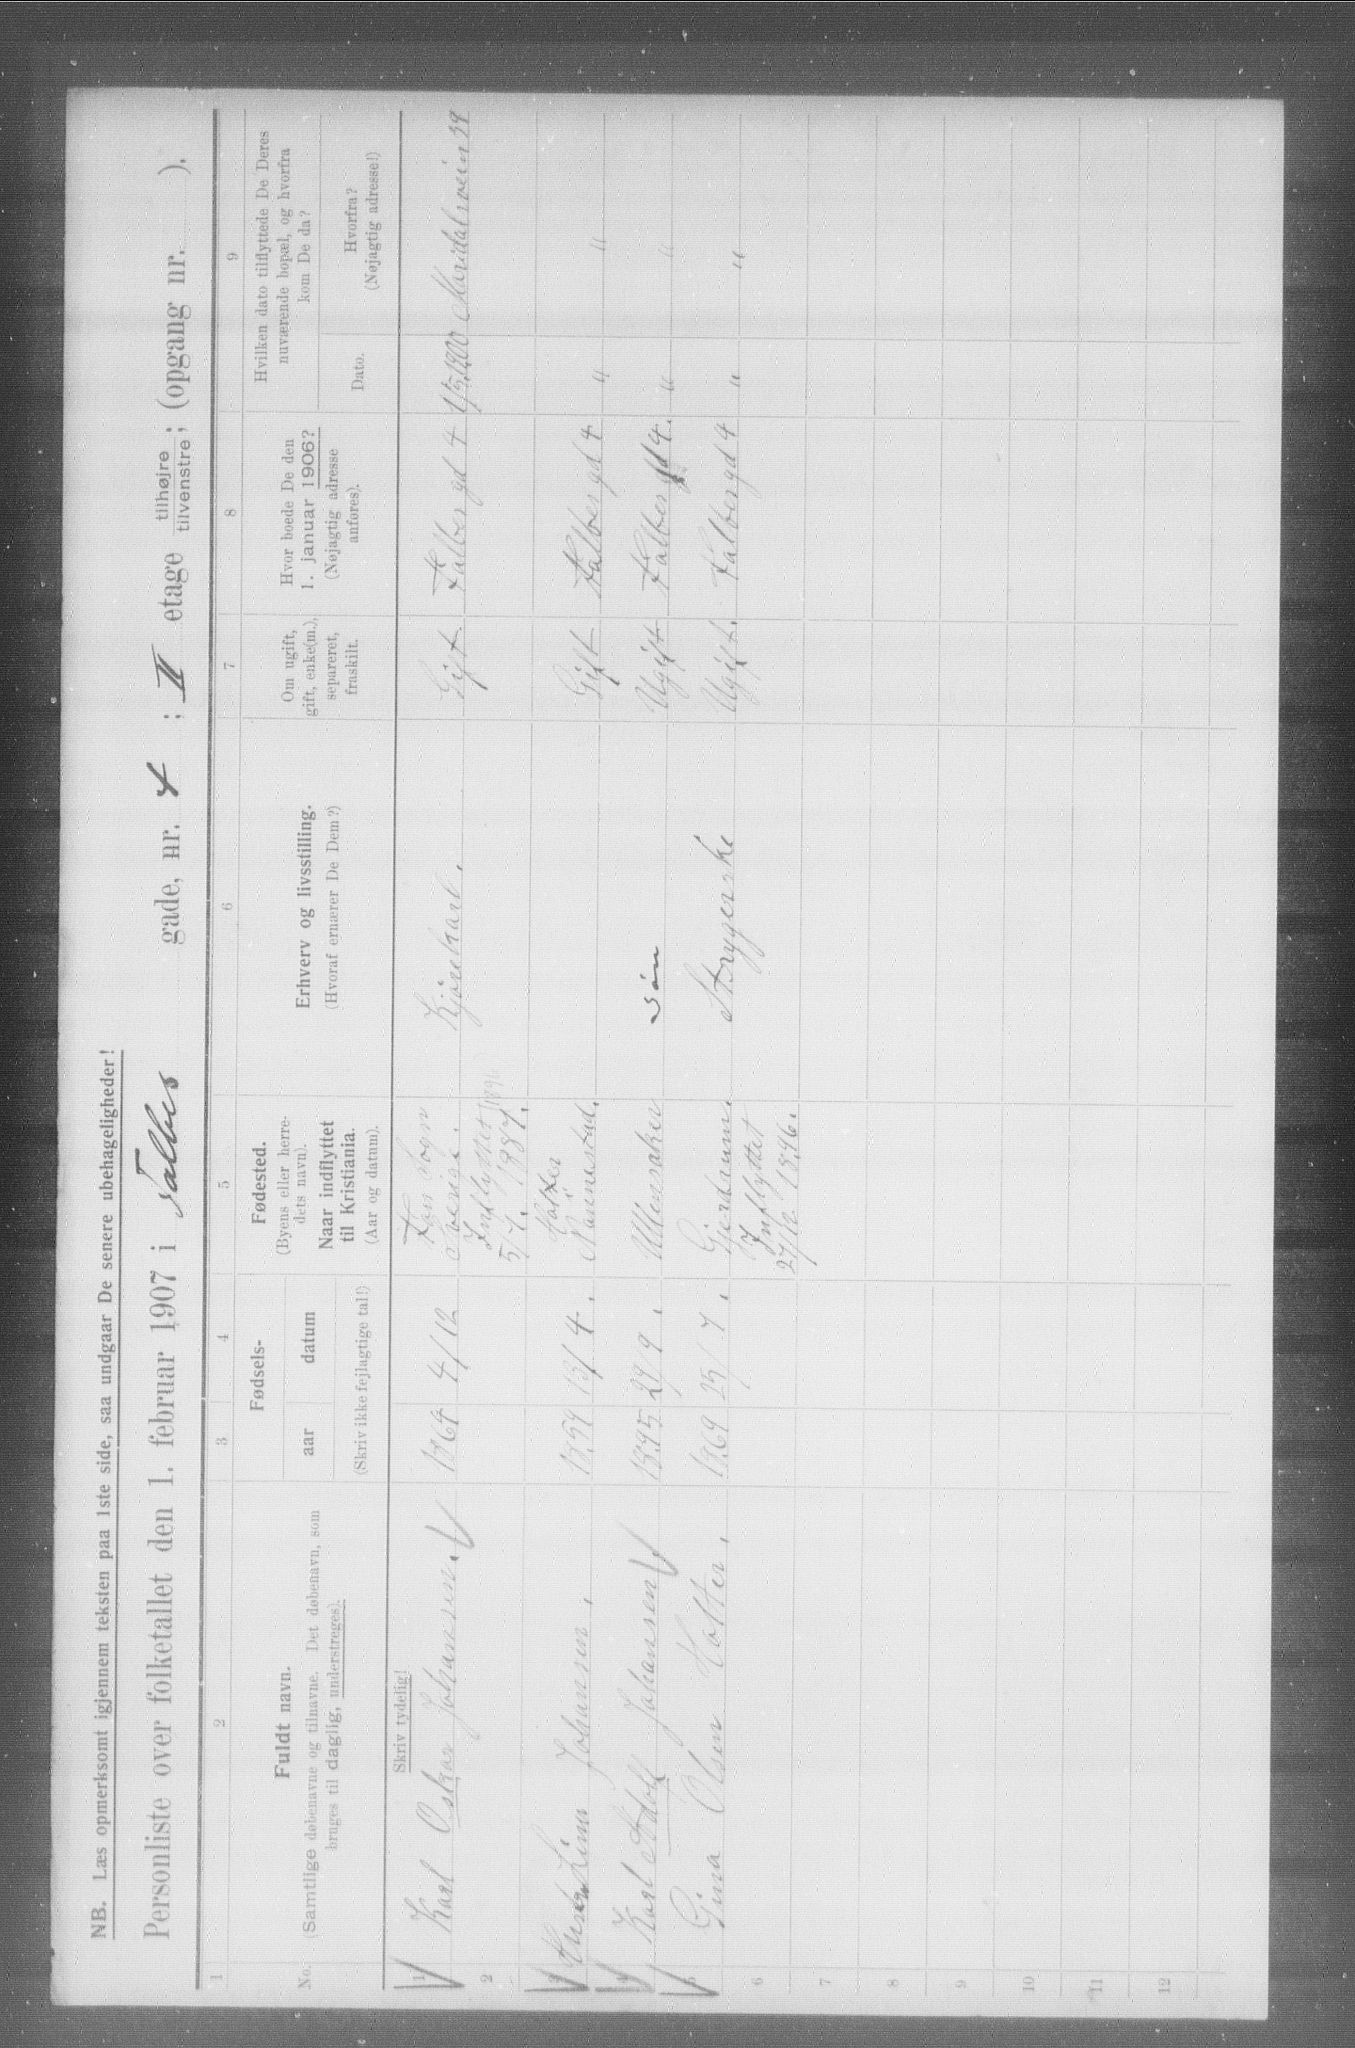 NB. Læs opmerksomt igjennem teksten paa 1ste side, saa undgaar De senere ubehageligheder!
Personliste over folketallet den 1. februar 1907 i Falbes gade, nr. 4 ; II etage tilhøjre / tilvenstre ; (opgang nr. ).
1 2 3 4 5 6 7 8 9
No.
Fuldt navn.
(Samtlige døbenavne og tilnavne. Det døbenavn, som
bruges til daglig, understreges).
Fødsels-
aar datum
(Skriv ikke fejlagtige tal!)
Fødested.
(Byens eller herre-
dets navn).
Naar indflyttet
til Kristiania.
(Aar og datum).
Erhverv og livsstilling.
(Hvoraf ernærer De Dem?)
Om ugift,
gift, enke(m.),
separeret,
fraskilt.
Hvor boede De den
1. januar 1906?
(Nøjagtig adresse
anføres).
Hvilken dato tilflyttede De Deres
nuværende bopæl, og hvorfra
kom De da?
Dato.
Hvorfra?
(Nøjagtig adresse!)
Skriv tydelig!
1 Karl Oskar Johansen 1864 4/12 Sogn Sverige. Kjörekarl. Gift. Falbesgd 4 1/5 1900 Maridalsveien 39
2 Indflyttet
5/7. 1887.
3 Lina Johansen, 1859 13/4. Gift Falbesgd 4 " "
4 Karl Adolf Johansen 1895 29/9. Ullensaker Søn Ugift Falbesgd 4. " "
5 Gina Olsen Holter. 1869 25/7. Gjerdrum. Strygerske Ugift. Falbesgd 4 " "
6 Indflyttet
27/12 1896.
7
8
9
10
11
12